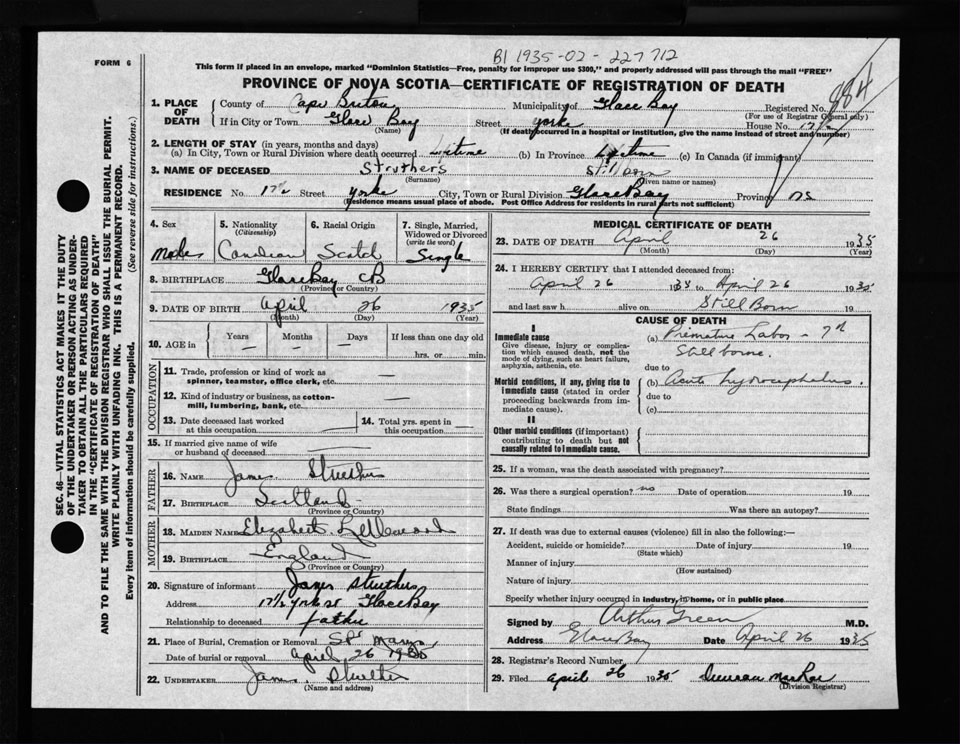 B1 1935-02-227712
FORM 6
This form if placed in an envelope, marked "Dominion Statistics—Free, penalty for improper use $300," and properly addressed will pass through the mail "FREE"
PROVINCE OF NOVA SCOTIA—CERTIFICATE OF REGISTRATION OF DEATH
884
1. PLACE OF DEATH
County of Cape Breton Municipality of Glace Bay Registered No.
(For use of Registrar General only)
If in City or Town Glace Bay Street Yorke House No. 17½
(Name) (If death occurred in a hospital or institution, give the name instead of street and number)
2. LENGTH OF STAY (in years, months and days)
(a) In City, Town or Rural Division where death occurred Lifetime (b) In Province Lifetime (c) In Canada (if immigrant)
3. NAME OF DECEASED Struthers Still Born
(Surname) (Given name or names)
RESIDENCE No. 17½ Street Yorke City, Town or Rural Division Glace Bay Province NS
(Residence means usual place of abode. Post Office Address for residents in rural parts not sufficient)
4. Sex
Male
5. Nationality
(Citizenship)
Canadian
6. Racial Origin
Scotch
7. Single, Married, Widowed or Divorced
(write the word)
Single
8. BIRTHPLACE Glace Bay CB
(Province or Country)
9. DATE OF BIRTH April 26 1935
(Month) (Day) (Year)
10. AGE in Years Months Days If less than one day old
— — — hrs. or min.
OCCUPATION
11. Trade, profession or kind of work as spinner, teamster, office clerk, etc. —
12. Kind of industry or business, as cotton-mill, lumbering, bank, etc. —
13. Date deceased last worked at this occupation — 14. Total yrs. spent in this occupation —
15. If married give name of wife or husband of deceased —
FATHER
16. NAME James Struthers
17. BIRTHPLACE Scotland
(Province or Country)
MOTHER
18. MAIDEN NAME Elizabeth
19. BIRTHPLACE England
(Province or Country)
20. Signature of informant James Struthers
Address 17½ York st Glace Bay
Relationship to deceased father
21. Place of Burial, Cremation or Removal
Date of burial or removal April 26 1935
22. UNDERTAKER James Struthers
(Name and address)
MEDICAL CERTIFICATE OF DEATH
23. DATE OF DEATH April 26 1935
(Month) (Day) (Year)
24. I HEREBY CERTIFY that I attended deceased from:
April 26 1935 to April 26 1935
and last saw h alive on Still Born 19
CAUSE OF DEATH
I
Immediate cause
Give disease, injury or complication which caused death, not the mode of dying, such as heart failure, asphyxia, asthenia, etc.
(a) Premature Labor - 7
Stillborne.
due to
Morbid conditions, if any, giving rise to immediate cause (stated in order proceeding backwards from immediate cause).
(b) Acute hydrocephalus.
due to
(c)
II
Other morbid conditions (if important) contributing to death but not causally related to immediate cause.
25. If a woman, was the death associated with pregnancy?
26. Was there a surgical operation? no Date of operation 19
State findings Was there an autopsy?
27. If death was due to external causes (violence) fill in also the following:—
Accident, suicide or homicide? Date of injury 19
(State which)
Manner of injury
(How sustained)
Nature of injury
Specify whether injury occurred in industry, in home, or in public place
Signed by Arthur Green M.D.
Address Glace Bay Date April 26 1935
28. Registrar's Record Number
29. Filed April 26 1935 Duncan MacRae
(Division Registrar)
SEC. 46—VITAL STATISTICS ACT MAKES IT THE DUTY
OF THE UNDERTAKER OR PERSON ACTING AS UNDER-
TAKER TO OBTAIN ALL THE PARTICULARS REQUIRED
IN THE "CERTIFICATE OF REGISTRATION OF DEATH"
AND TO FILE THE SAME WITH THE DIVISION REGISTRAR WHO SHALL ISSUE THE BURIAL PERMIT.
WRITE PLAINLY WITH UNFADING INK. THIS IS A PERMANENT RECORD.
Every item of information should be carefully supplied. (See reverse side for instructions.)